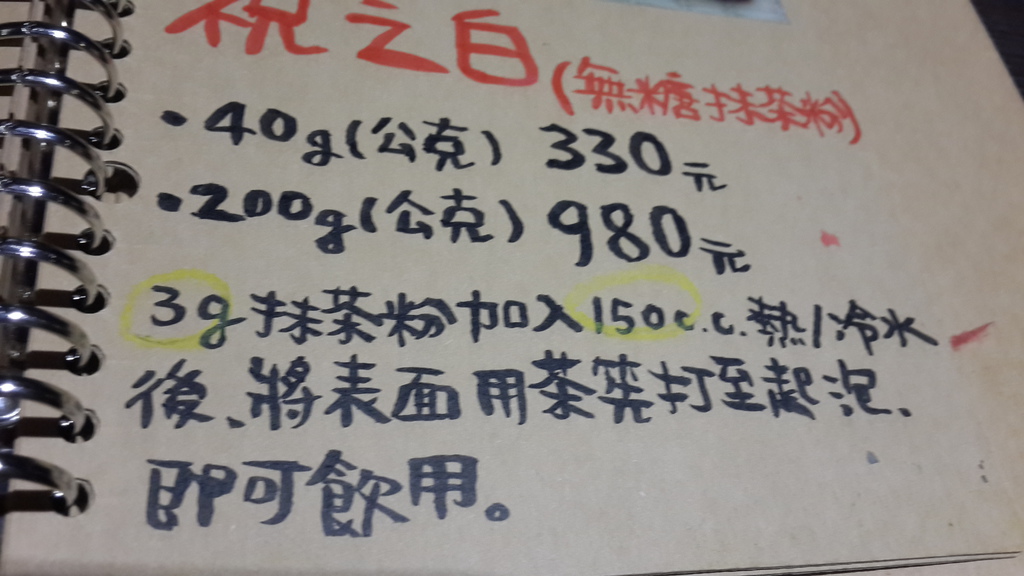 祝之白
(無糖抹茶粉)
・40g(公克) 330元
・200g(公克) 980元
3g抹茶粉加入150c.c.熱/冷水
後、將表面用茶筅打至起泡、
即可飲用。